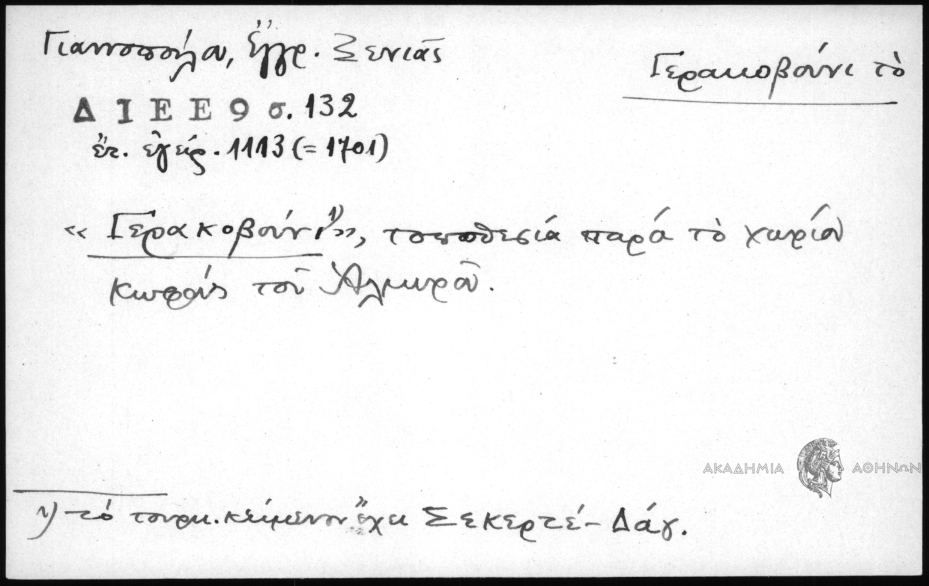 Γιαννοπούλου, Ἔγγρ. Ξενιᾶς
Γερακοβούνι τὸ
Δ Ι Ε Ε 9 σ. 132
ἔτ. ἐγείρ. 1113 (= 1701)
« Γερακοβούνι¹⁾», τοποθεσία παρὰ τὸ χωρίον
Κωφοὺς τοῦ Ἁλμυροῦ.
ΑΚΑΔΗΜΙΑ ΑΘΗΝΩΝ
1) τὸ τουρκ. κείμενον ἔχει Σεκερτέ-Δάγ.